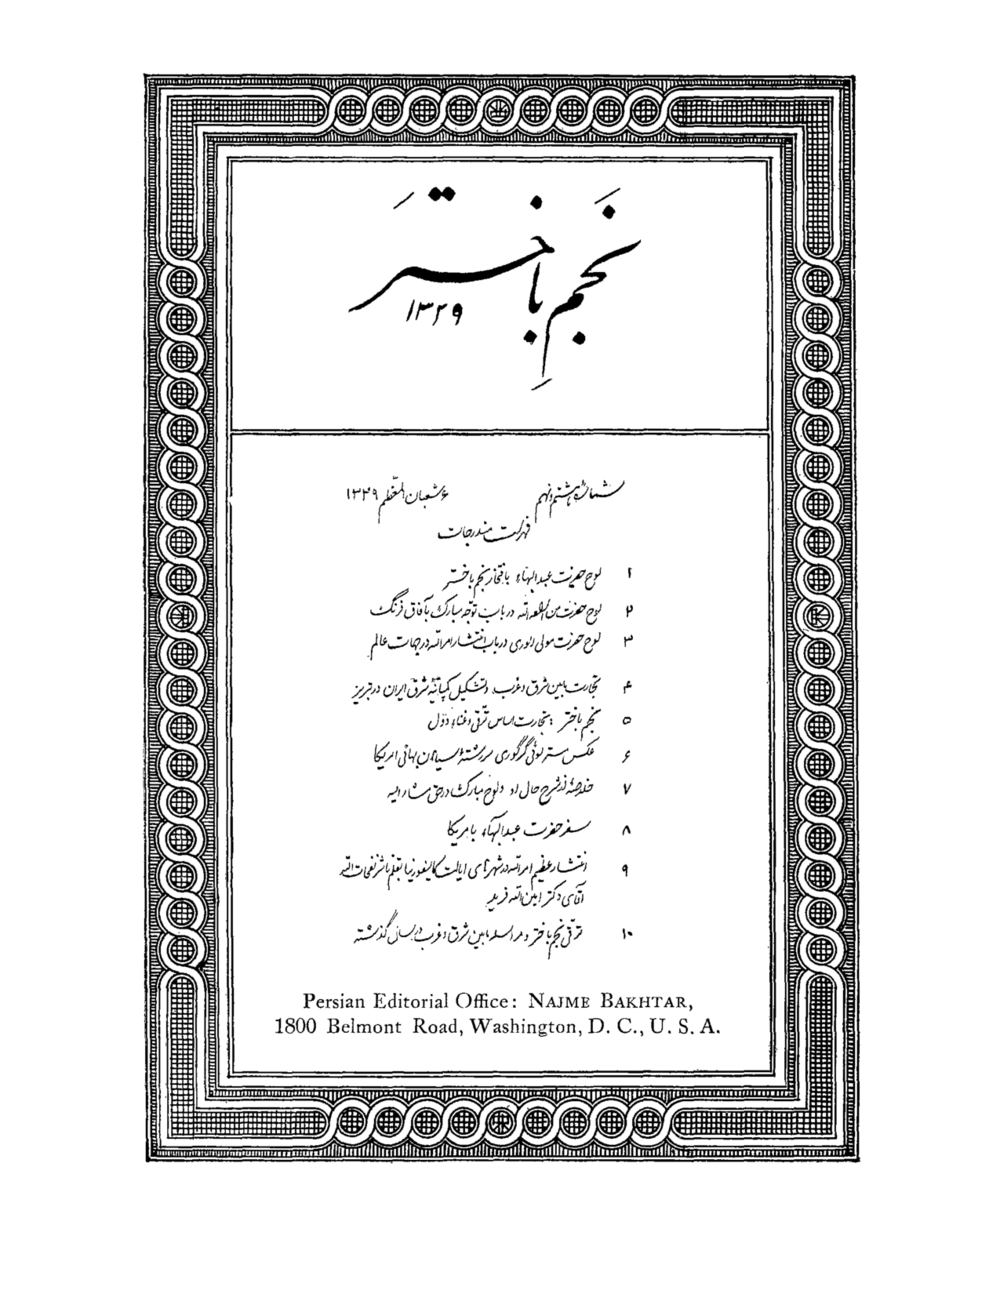 نَجمِ باختَر
۱۳۲۹
شماره هشتم و نهم ۶ شعبان المعظّم ۱۳۲۹
فهرست مندرجات
۱ لوح حضرت عبدالبهاء بافتخار نجم باختر
۲ لوح حضرت من اراده الله در باب توجّه مبارک بآفاق فرنگ
۳ لوح حضرت مولی الوری در باب انتشار امرالله در جهات عالم
۴ تجارت مابین شرق و غرب و تشکیل کمپانیهٔ شرق ایران در تبریز
۵ نجم باختر : تجارت اساس ترقّی و غناء دول
۶ عکس مستر لوئی گرگوری سررشتهٔ سیاهان بهائی امریکا
۷ خلاصهٔ از شرح حال او و لوح مبارک در حق مشارالیه
۸ سفر حضرت عبدالبهاء بامریکا
۹ انتشار عظیم امرالله در شهرهای ایالت کالیفورنیا بقلم ناشر نفحات الله
آقای دکتر امین الله فرید
۱۰ ترقی نجم باختر و مراسله مابین شرق و غرب در سال گذشته
Persian Editorial Office: NAJME BAKHTAR,
1800 Belmont Road, Washington, D. C., U. S. A.